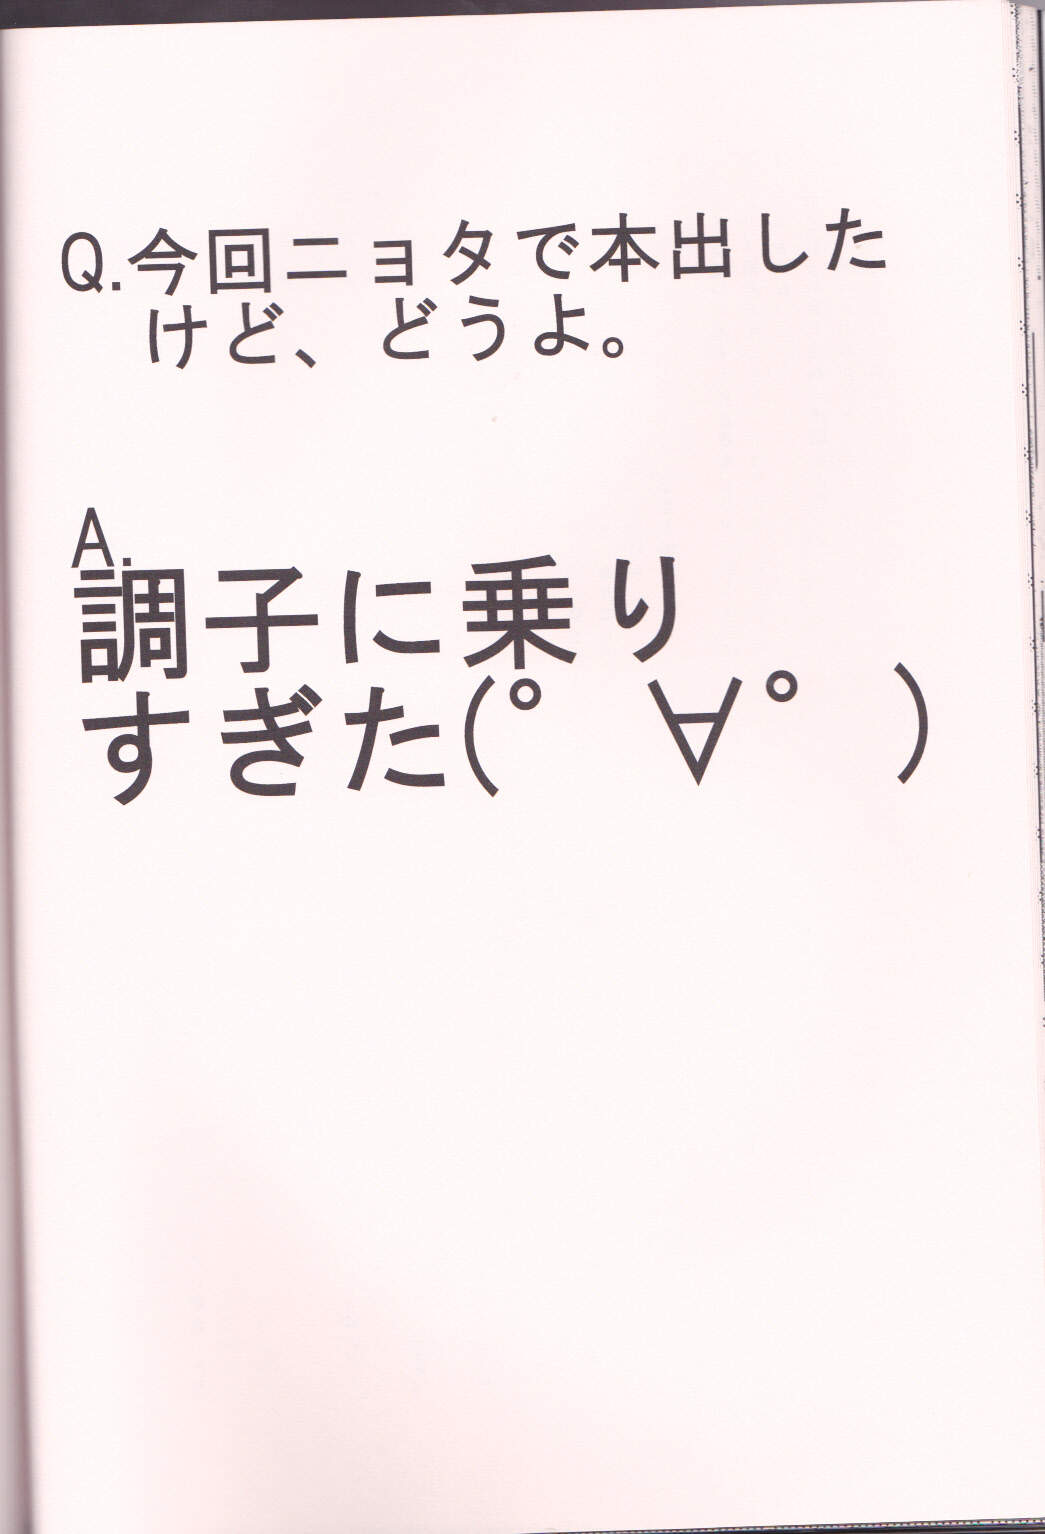 Q.今回ニョタで本出した
けど、どうよ。
A.
調子に乗り
すぎた(ﾟ ∀ﾟ )